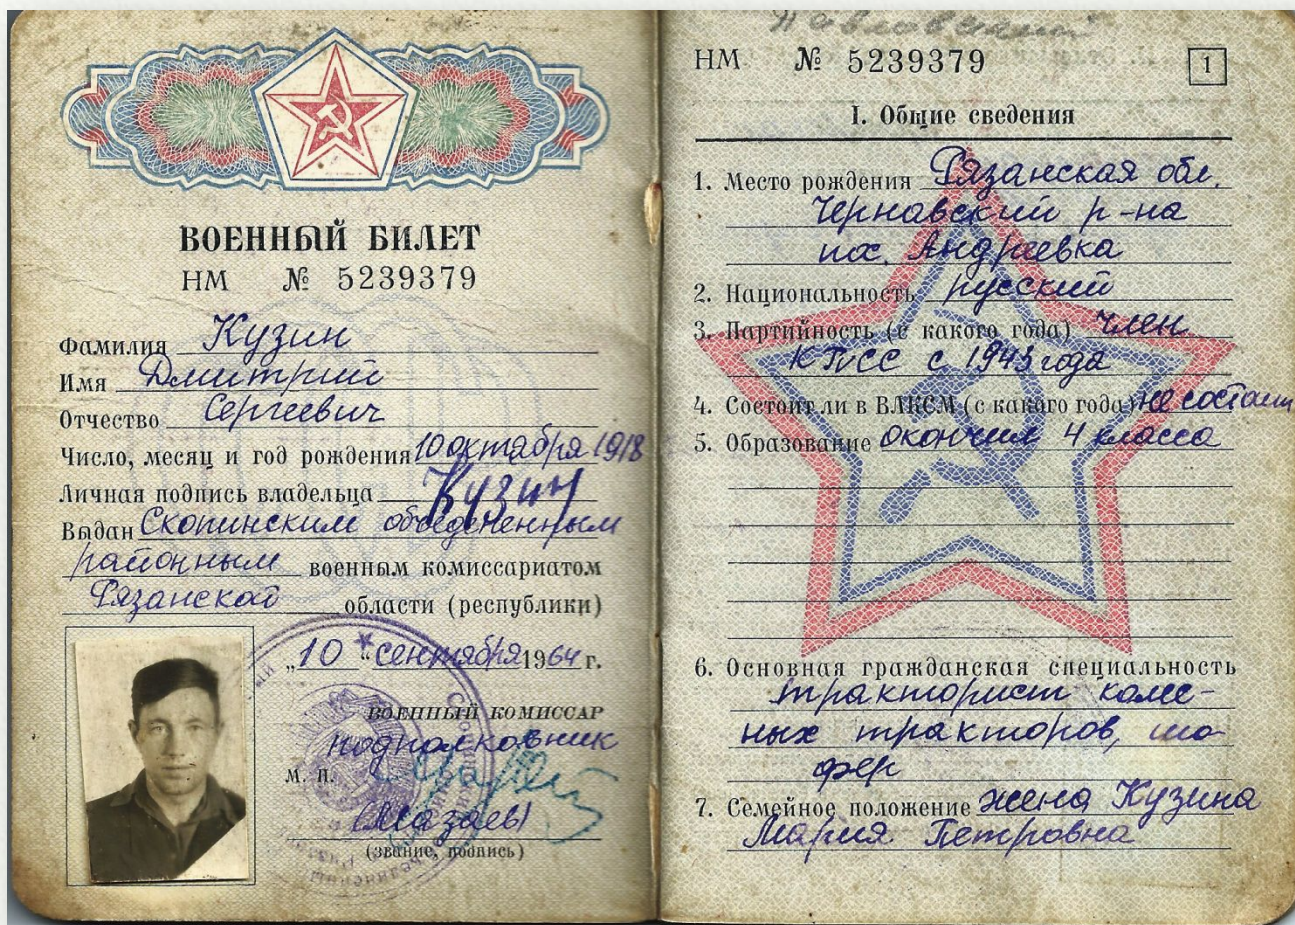 ВОЕННЫЙ БИЛЕТ
НМ № 5239379
Фамилия Кузин
Имя Дмитрий
Отчество Сергеевич
Число, месяц и год рождения 10 октября 1918
Личная подпись владельца Кузин
Выдан Скопинским объеденённым
районным военным комиссариатом
Рязанской области (республики)
„10“ сентября 1964 г.
ВОЕННЫЙ КОМИССАР
подполковник
М. П.
(звание, подпись)
НМ № 5239379
1
I. Общие сведения
1. Место рождения Рязанская обл.
Чернавский р-на
пос. Андреевка
2. Национальность русский
3. Партийность (с какого года) член
КПСС с 1943 года
4. Состоит ли в ВЛКСМ (с какого года) не состоит
5. Образование окончил 4 класса
6. Основная гражданская специальность
тракторист колес-
ных тракторов, шо-
фер
7. Семейное положение жена Кузина
Мария Петровна